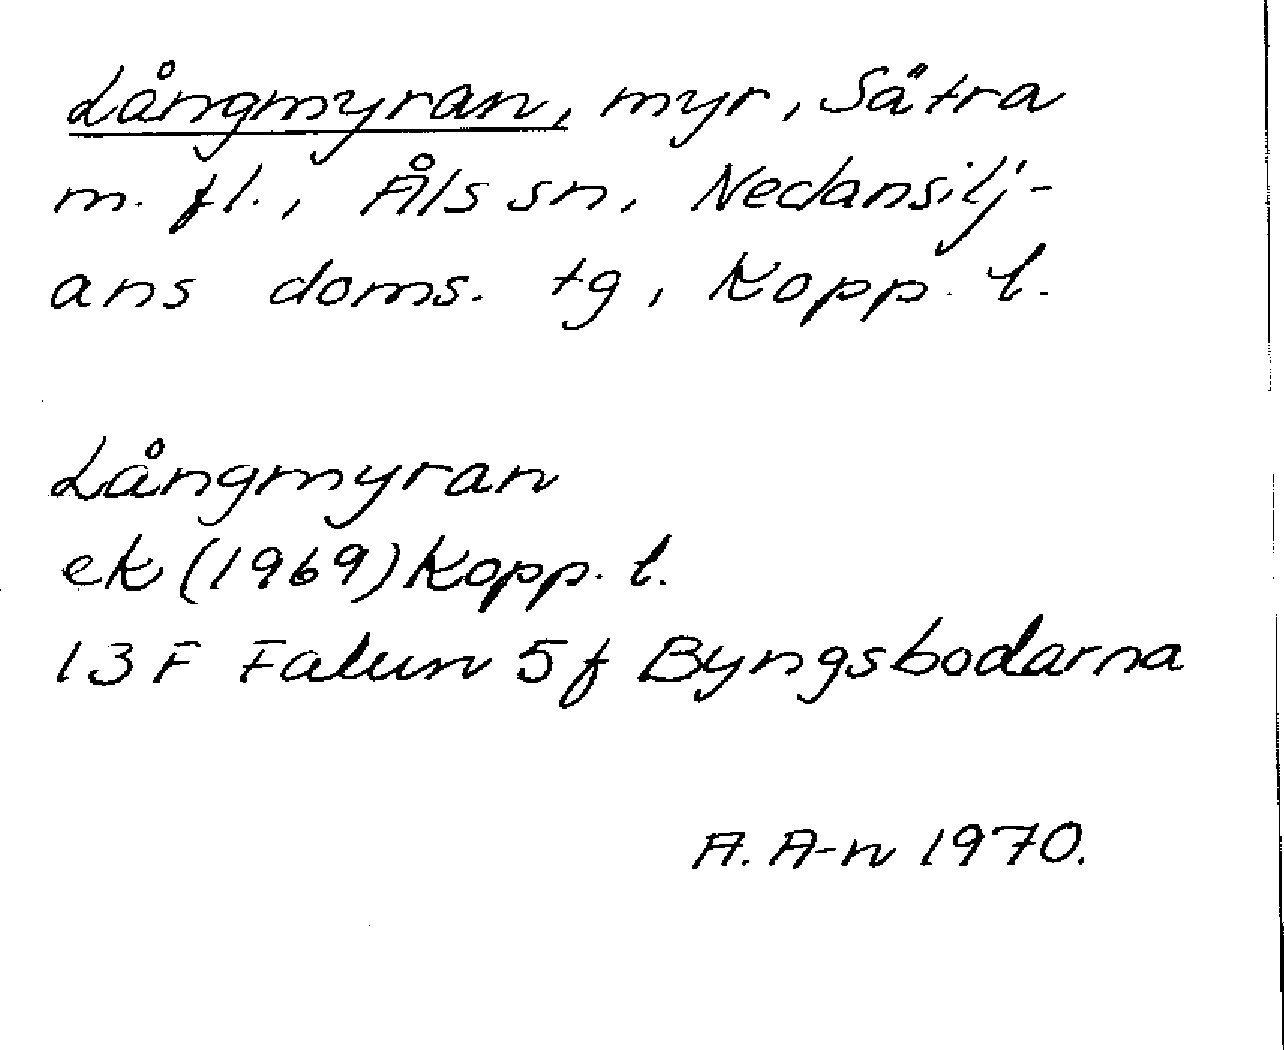 Långmyran, myr, Sätra
m. fl., Åls sn, Nedansilj-
ans doms. tg, Kopp. l.
Långmyran
ek (1969) Kopp. l.
13 F Falun 5 f Byngsbodarna
A. A-n 1970.